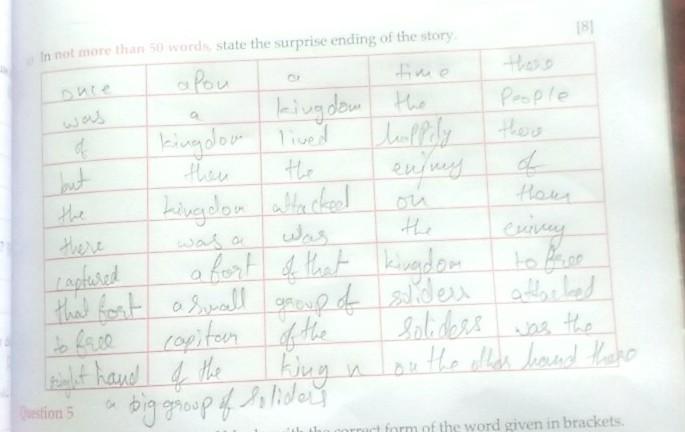 In not more than 50 words, state the surprise ending of the story. [8]
once apon a time there
was a kingdom the people
of kingdom lived happily there
but then the enimy of
the kingdom attacked on them
there was a was the enimy
captured a fort of that kingdom to free
that fort a small group of soliders attacked
to free capitan of the soliders was the
right hand of the king n on the other hand there
a big group of soliders
Question 5
correct form of the word given in brackets.